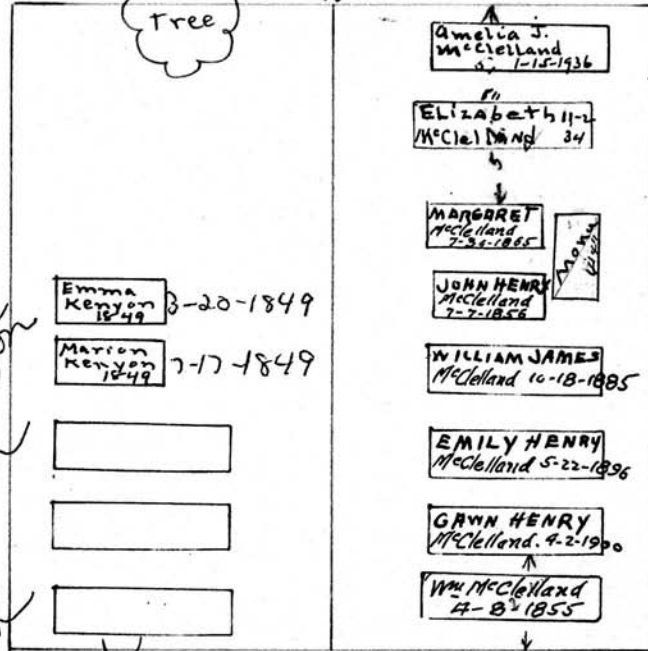 Tree
Emma
Kenyon
1849
3-20-1849
Marion
Kenyon
1849
7-17-1849
Amelia J.
McClelland
1-15-1936
ELIZABETH 11-2
McClelland 34
MARGARET
McClelland
7-30-1865
Monu
JOHN HENRY
McClelland
7-7-1856
WILLIAM JAMES
McClelland 10-18-1885
EMILY HENRY
McClelland 5-22-1896
GAWN HENRY
McClelland. 4-2-1900
Wm McClelland
4-8-1855